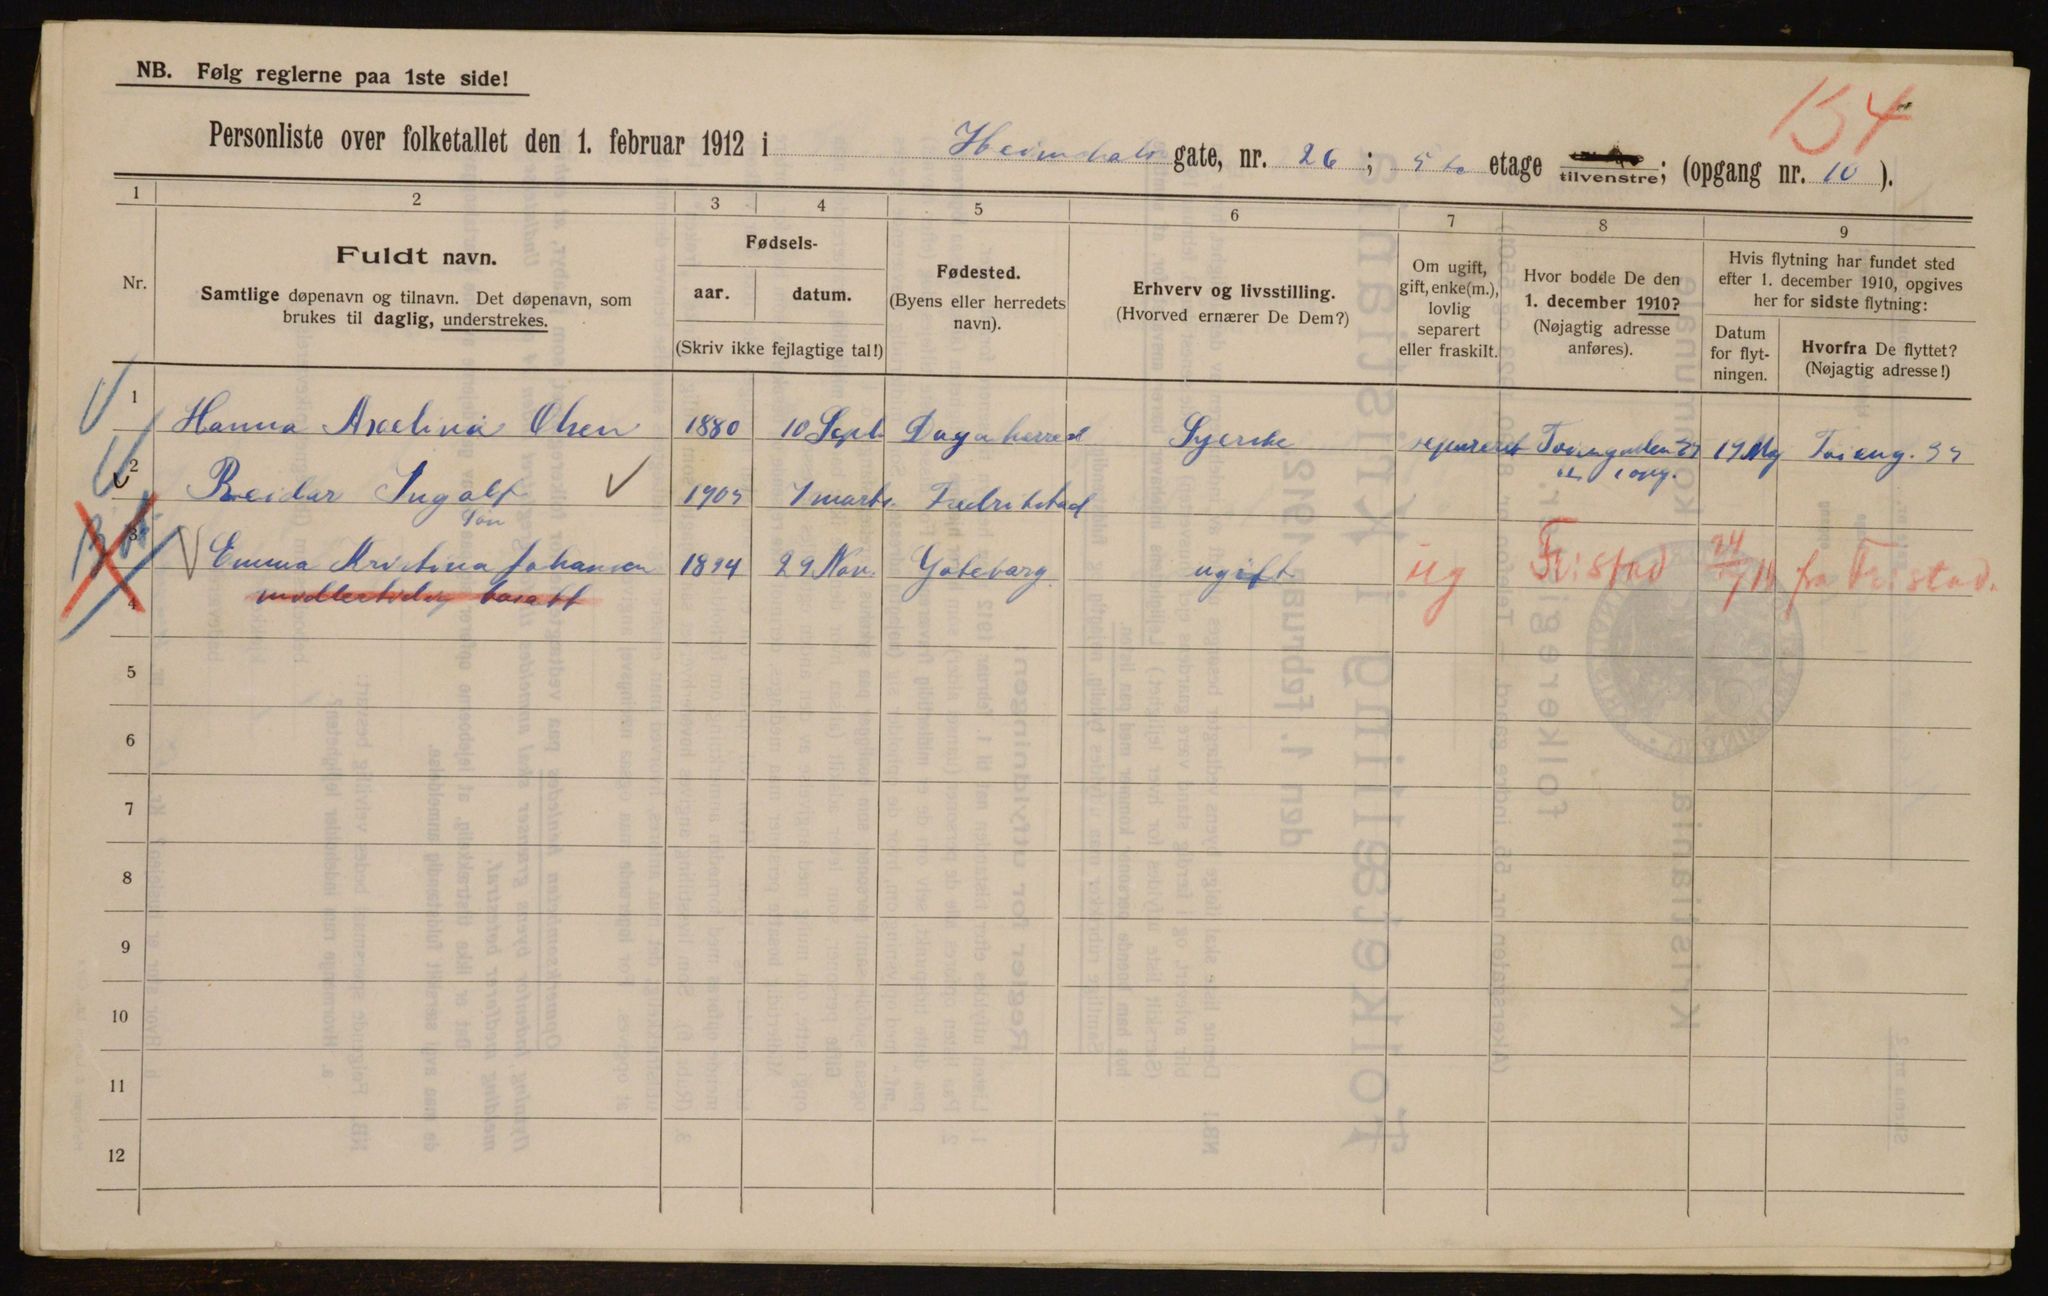 NB. Følg reglerne paa 1ste side!
154
Personliste over folketallet den 1. februar 1912 i Heimdals gate, nr. 26; 5te etage tilvenstre; (opgang nr. 10).
1 2 3 4 5 6 7 8 9
Nr.
Fuldt navn.
Samtlige døpenavn og tilnavn. Det døpenavn, som
brukes til daglig, understrekes.
Fødsels-
aar. datum.
(Skriv ikke fejlagtige tal!)
Fødested.
(Byens eller herredets
navn).
Erhverv og livsstilling.
(Hvorved ernærer De Dem?)
Om ugift,
gift, enke(m.),
lovlig
separert
eller fraskilt.
Hvor bodde De den
1. december 1910?
(Nøjagtig adresse
anføres).
Hvis flytning har fundet sted
efter 1. december 1910, opgives
her for sidste flytning:
Datum
for flyt-
ningen.
Hvorfra De flyttet?
(Nøjagtig adresse!)
1 Hanna Axelina Olsen 1880 10 Sept. Syerske 19 Maj
2 Reidar Ingolf 1905 7 marts. Fredrikstad
Søn
3 Emma Kristina Johansen 1894 29 Nov. Göteborg ugift ug Fr:stad 24/7 11 fra Fr:stad.
4 midlertidig bosatt
5
6
7
8
9
10
11
12